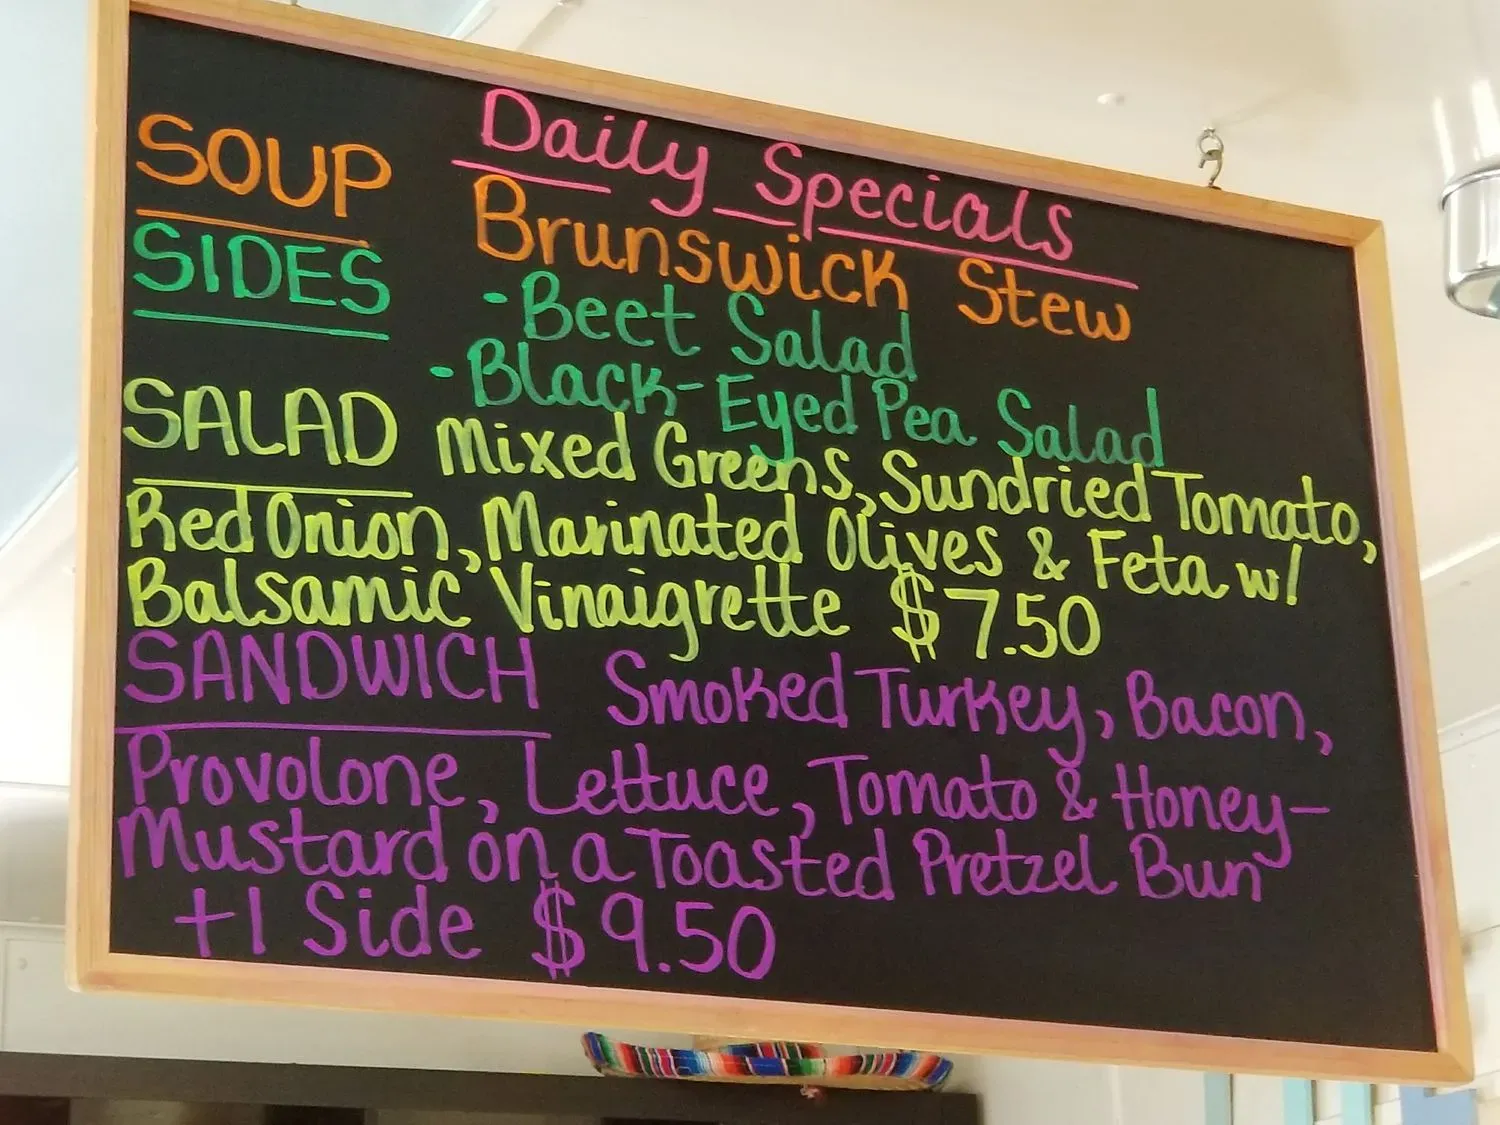 Daily Specials
SOUP Brunswick Stew
SIDES - Beet Salad
- Black-Eyed Pea Salad
SALAD Mixed Greens, Sundried Tomato,
Red Onion, Marinated Olives & Feta w/
Balsamic Vinaigrette $7.50
SANDWICH Smoked Turkey, Bacon,
Provolone, Lettuce, Tomato & Honey-
Mustard on a Toasted Pretzel Bun
+1 Side $9.50